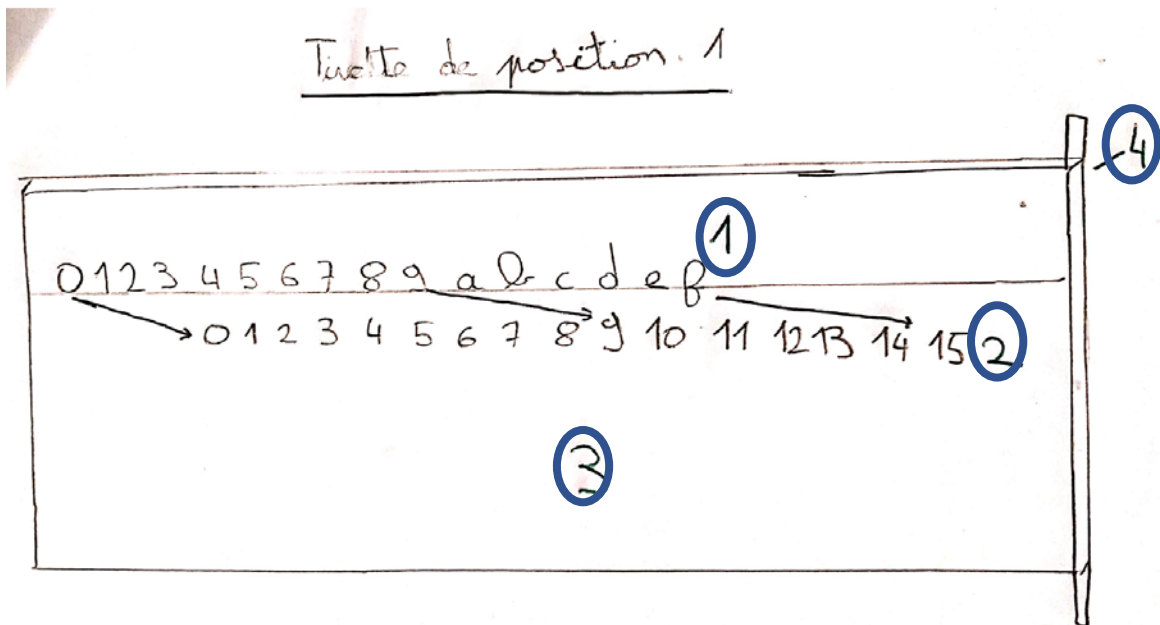 Tirette de position. 1
4
1
0 1 2 3 4 5 6 7 8 9 a b c d e f
0 1 2 3 4 5 6 7 8 9 10 11 12 13 14 15 2
3